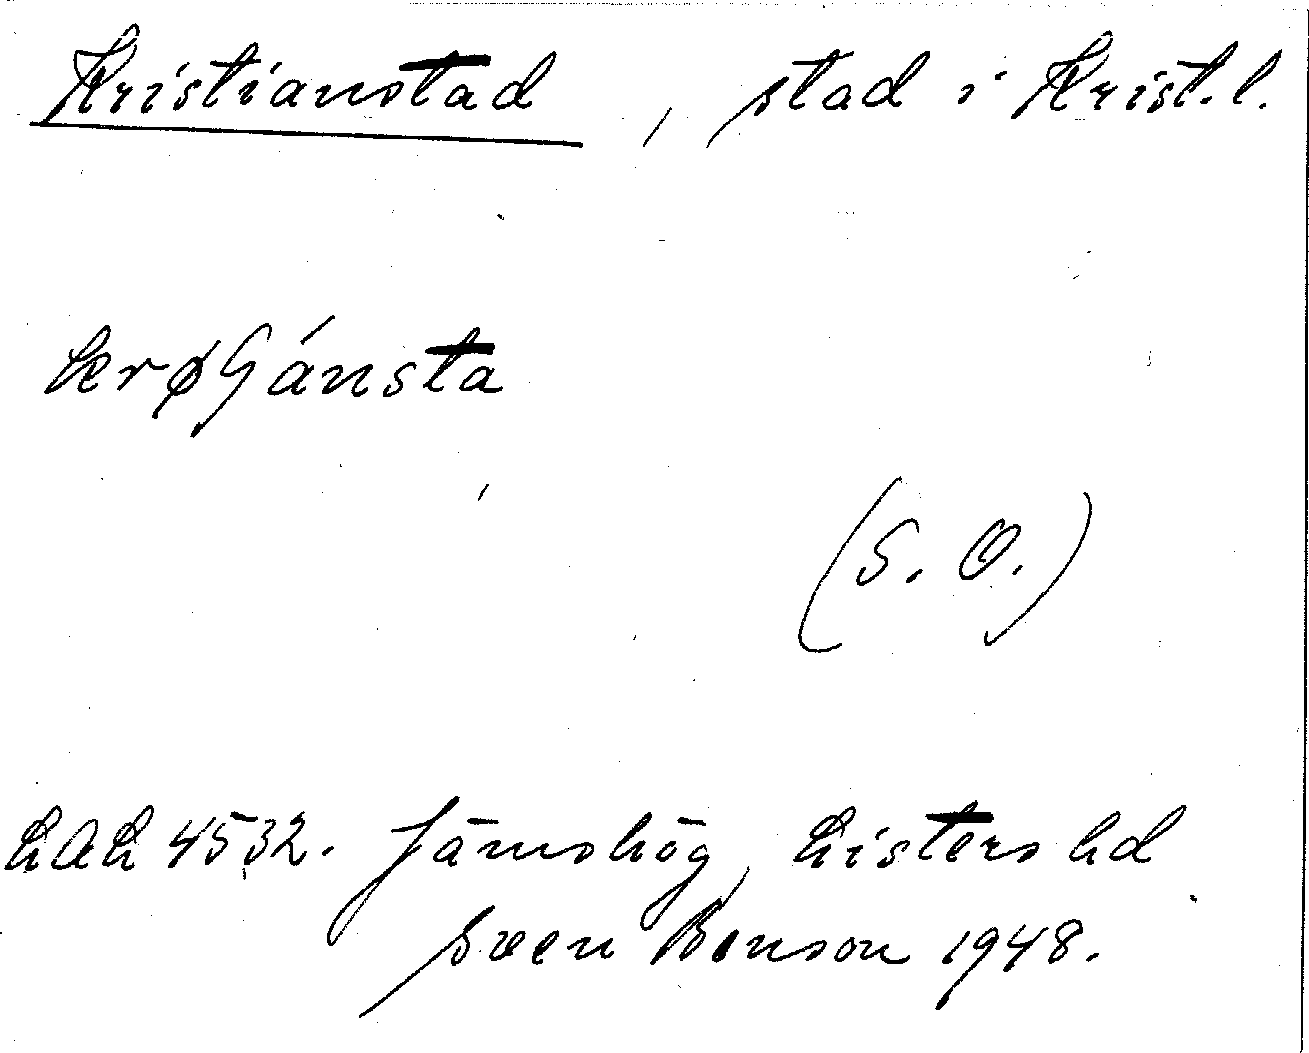 Kristianstad, stad i Krist. l.
(S. O.)
LAL 4532. Jämshög, Listers hd
Sven Benson 1948.